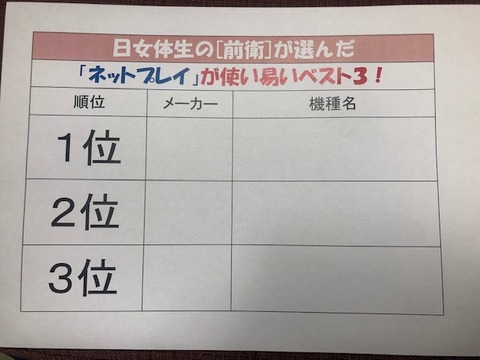 日女体生の[前衛]が選んだ
「ネットプレイ」が使い易いベスト3！
順位 メーカー 機種名
1位
2位
3位